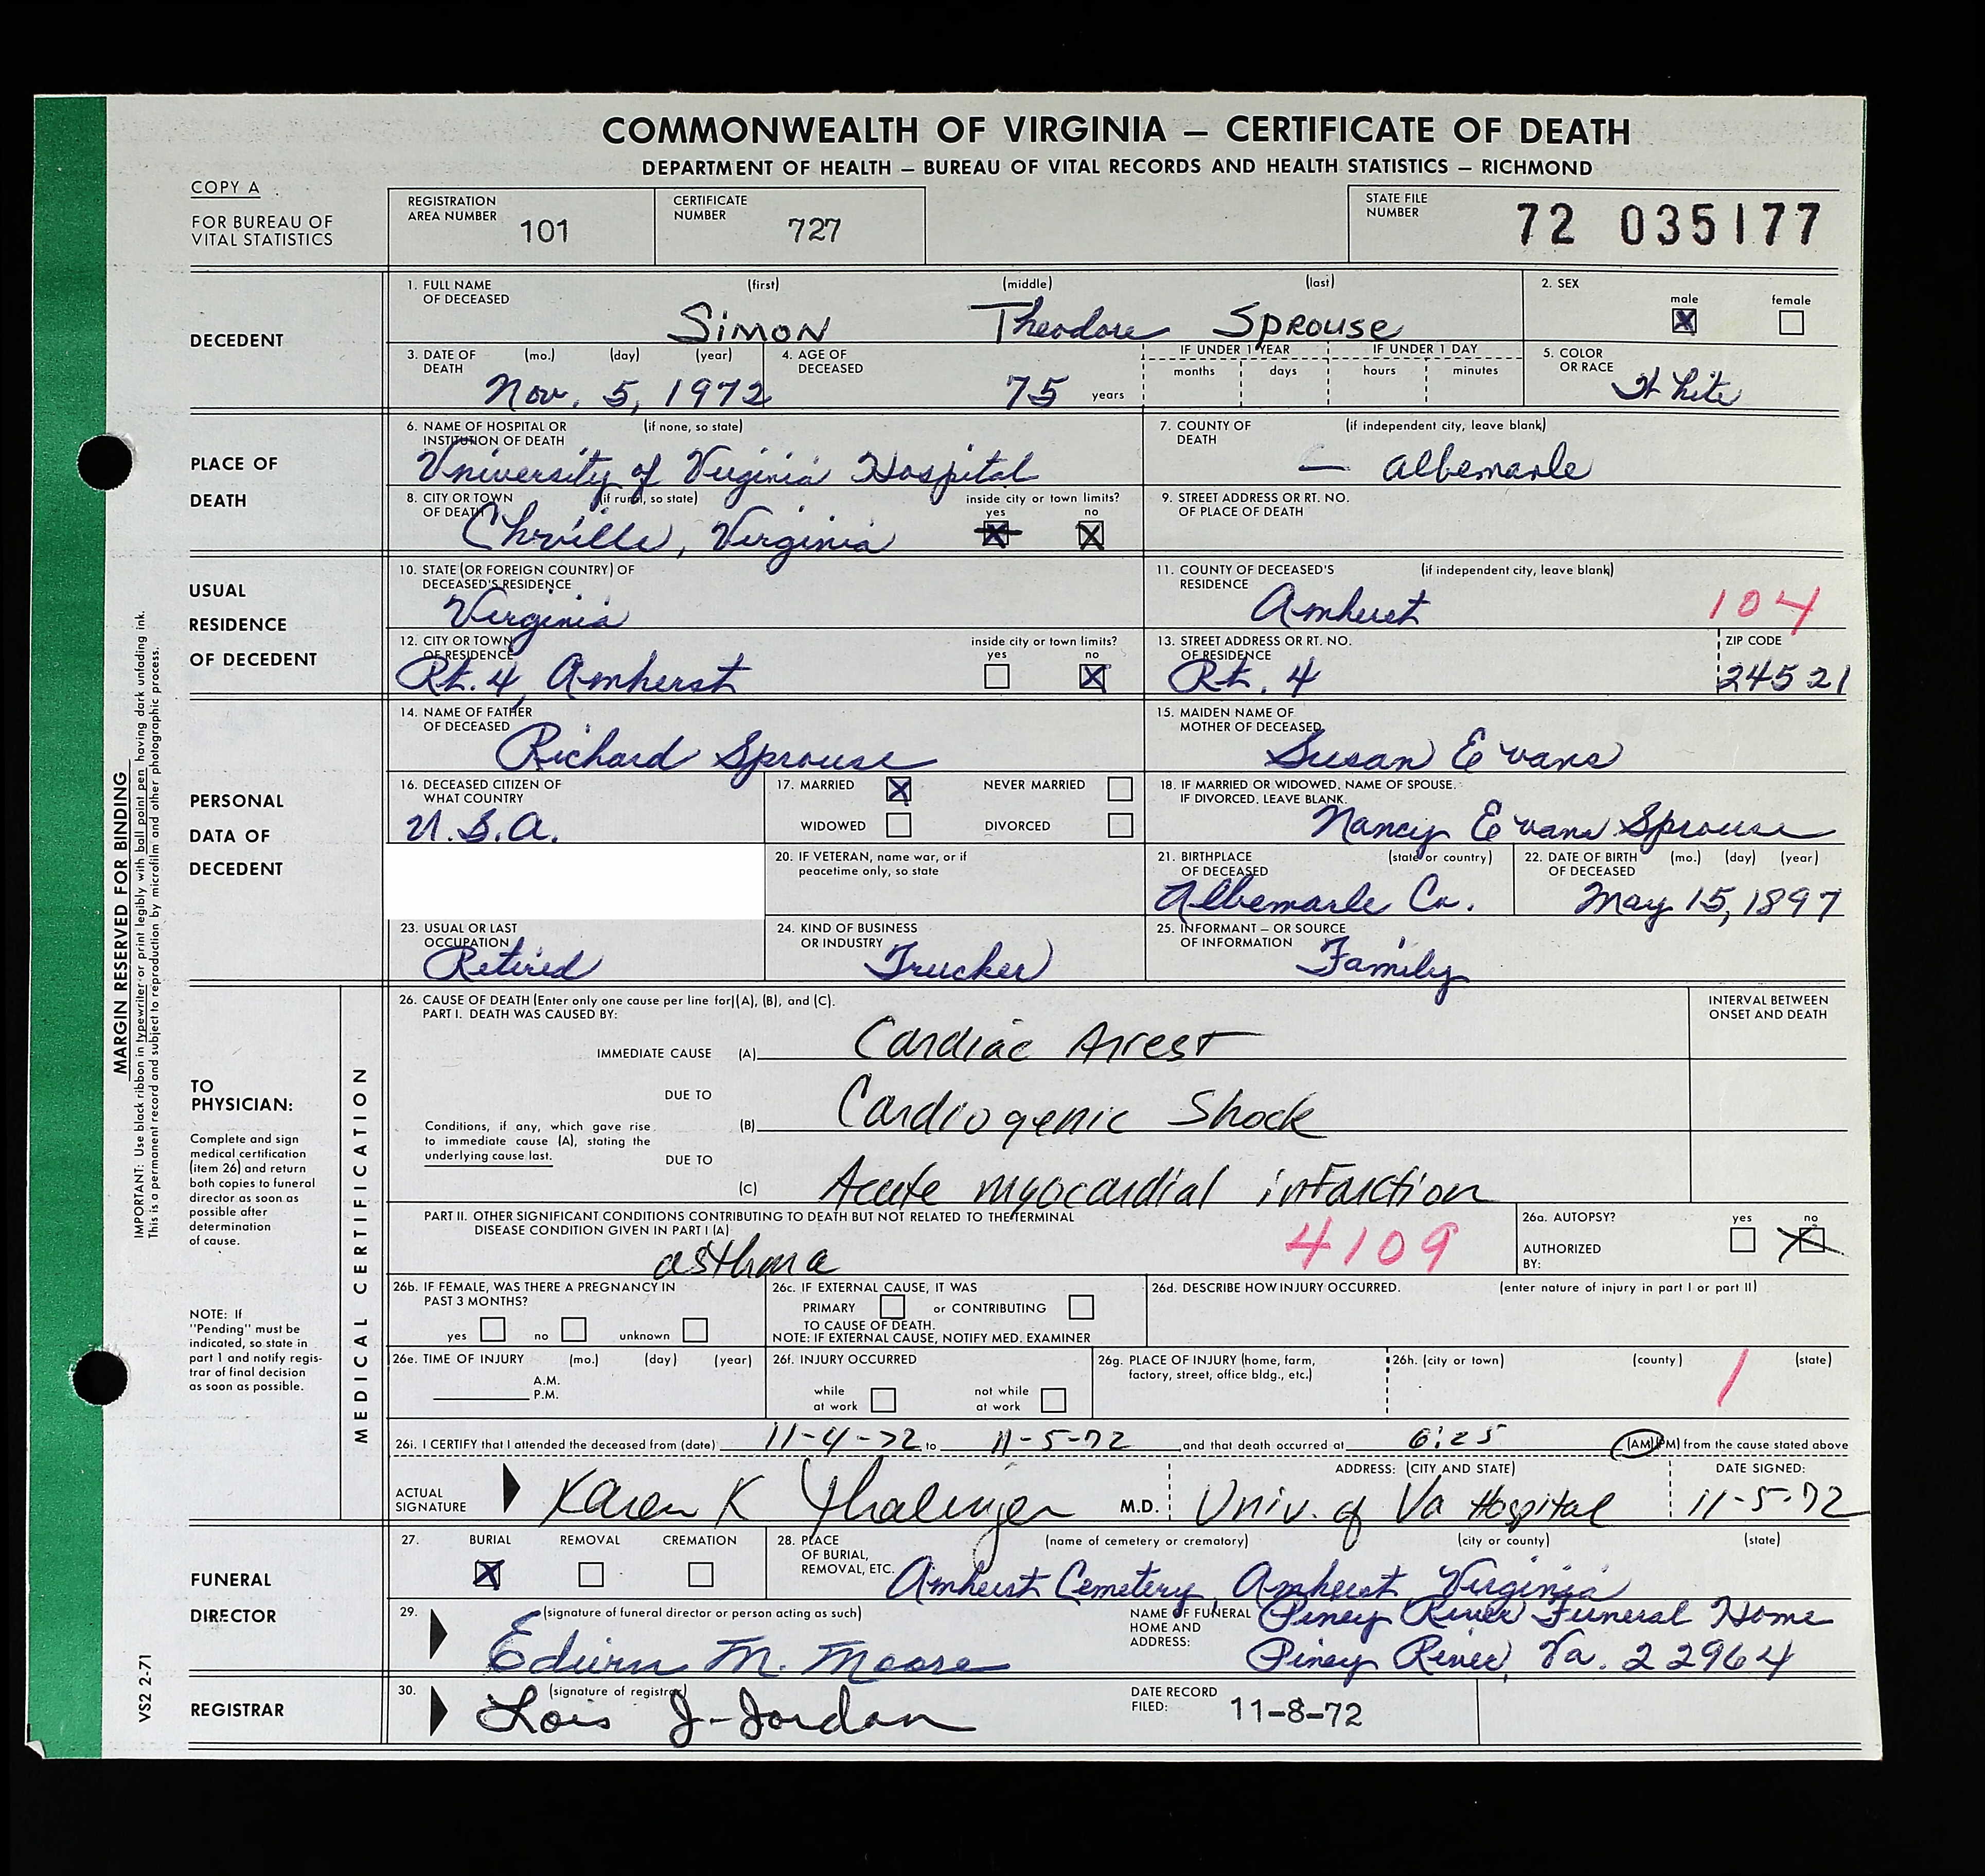 COMMONWEALTH OF VIRGINIA — CERTIFICATE OF DEATH
DEPARTMENT OF HEALTH — BUREAU OF VITAL RECORDS AND HEALTH STATISTICS — RICHMOND
COPY A
FOR BUREAU OF
VITAL STATISTICS
REGISTRATION
AREA NUMBER 101
CERTIFICATE
NUMBER 727
STATE FILE
NUMBER 72 035177
DECEDENT
1. FULL NAME (first) (middle) (last)
OF DECEASED
Simon Theodore Sprouse
2. SEX
male female
X
3. DATE OF (mo.) (day) (year)
DEATH
Nov. 5, 1972
4. AGE OF
DECEASED
75 years
IF UNDER 1 YEAR IF UNDER 1 DAY
months days hours minutes
5. COLOR
OR RACE
White
PLACE OF
DEATH
6. NAME OF HOSPITAL OR (if none, so state)
INSTITUTION OF DEATH
University of Virginia Hospital
7. COUNTY OF (if independent city, leave blank)
DEATH
— Albemarle
8. CITY OR TOWN (if rural, so state) inside city or town limits?
OF DEATH yes no
Chville, Virginia X X
9. STREET ADDRESS OR RT. NO.
OF PLACE OF DEATH
USUAL
RESIDENCE
OF DECEDENT
10. STATE (OR FOREIGN COUNTRY) OF
DECEASED'S RESIDENCE
Virginia
11. COUNTY OF DECEASED'S (if independent city, leave blank)
RESIDENCE
Amherst 104
12. CITY OR TOWN inside city or town limits?
OF RESIDENCE yes no
Rt. 4, Amherst X
13. STREET ADDRESS OR RT. NO. ZIP CODE
OF RESIDENCE
Rt. 4 24521
PERSONAL
DATA OF
DECEDENT
14. NAME OF FATHER
OF DECEASED
Richard Sprouse
15. MAIDEN NAME OF
MOTHER OF DECEASED
Susan Evans
16. DECEASED CITIZEN OF
WHAT COUNTRY
U.S.A.
17. MARRIED X NEVER MARRIED
WIDOWED DIVORCED
18. IF MARRIED OR WIDOWED, NAME OF SPOUSE.
IF DIVORCED, LEAVE BLANK.
Nancy Evans Sprouse
20. IF VETERAN, name war, or if
peacetime only, so state
21. BIRTHPLACE (state or country)
OF DECEASED
Albemarle Co.
22. DATE OF BIRTH (mo.) (day) (year)
OF DECEASED
May 15, 1897
23. USUAL OR LAST
OCCUPATION
Retired
24. KIND OF BUSINESS
OR INDUSTRY
Trucker
25. INFORMANT — OR SOURCE
OF INFORMATION
Family
TO
PHYSICIAN:
Complete and sign
medical certification
(item 26) and return
both copies to funeral
director as soon as
possible after
determination
of cause.
NOTE: If
"Pending" must be
indicated, so state in
part 1 and notify regis-
trar of final decision
as soon as possible.
MEDICAL CERTIFICATION
26. CAUSE OF DEATH (Enter only one cause per line for (A), (B), and (C).
PART I. DEATH WAS CAUSED BY:
INTERVAL BETWEEN
ONSET AND DEATH
IMMEDIATE CAUSE (A) Cardiac Arrest
DUE TO
Conditions, if any, which gave rise
to immediate cause (A), stating the
underlying cause last.
(B) Cardiogenic Shock
DUE TO
(C) Acute myocardial infarction
PART II. OTHER SIGNIFICANT CONDITIONS CONTRIBUTING TO DEATH BUT NOT RELATED TO THE TERMINAL
DISEASE CONDITION GIVEN IN PART I (A)
asthma 4109
26a. AUTOPSY? yes no
X
AUTHORIZED
BY:
26b. IF FEMALE, WAS THERE A PREGNANCY IN
PAST 3 MONTHS?
yes no unknown
26c. IF EXTERNAL CAUSE, IT WAS
PRIMARY or CONTRIBUTING
TO CAUSE OF DEATH.
NOTE: IF EXTERNAL CAUSE, NOTIFY MED. EXAMINER
26d. DESCRIBE HOW INJURY OCCURRED. (enter nature of injury in part I or part II)
26e. TIME OF INJURY (mo.) (day) (year)
A.M.
P.M.
26f. INJURY OCCURRED
while
at work
not while
at work
26g. PLACE OF INJURY (home, farm,
factory, street, office bldg., etc.)
26h. (city or town) (county) (state)
1
26i. I CERTIFY that I attended the deceased from (date) 11-4-72 to 11-5-72 and that death occurred at 6:25 (AM) (PM) from the cause stated above
ACTUAL
SIGNATURE
Karen K Thalinger M.D.
ADDRESS: (CITY AND STATE)
Univ. of Va Hospital
DATE SIGNED:
11-5-72
FUNERAL
DIRECTOR
27. BURIAL REMOVAL CREMATION
X
28. PLACE (name of cemetery or crematory) (city or county) (state)
OF BURIAL,
REMOVAL, ETC.
Amherst Cemetery, Amherst Virginia
29. (signature of funeral director or person acting as such)
Edwin M. Moore
NAME OF FUNERAL
HOME AND
ADDRESS:
Piney River Funeral Home
Piney River, Va. 22964
REGISTRAR
30. (signature of registrar)
Lois J. Jordan
DATE RECORD
FILED: 11-8-72
MARGIN RESERVED FOR BINDING
IMPORTANT: Use black ribbon in typewriter or print legibly with ball point pen having dark unfading ink.
This is a permanent record and subject to reproduction by microfilm and other photographic process.
VS2 2-71